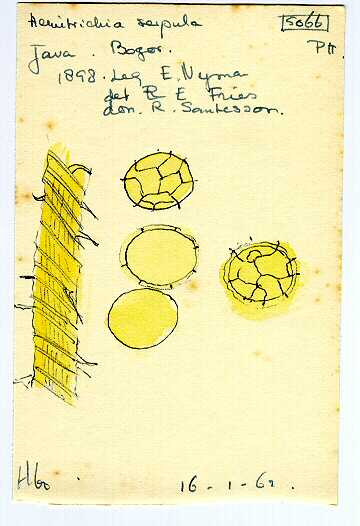 Hemitrichia serpula 5066
Java . Bogor.
1898. Leg E. Nyman
det R E Fries
don. R. Santesson.
H60 16-1-62.